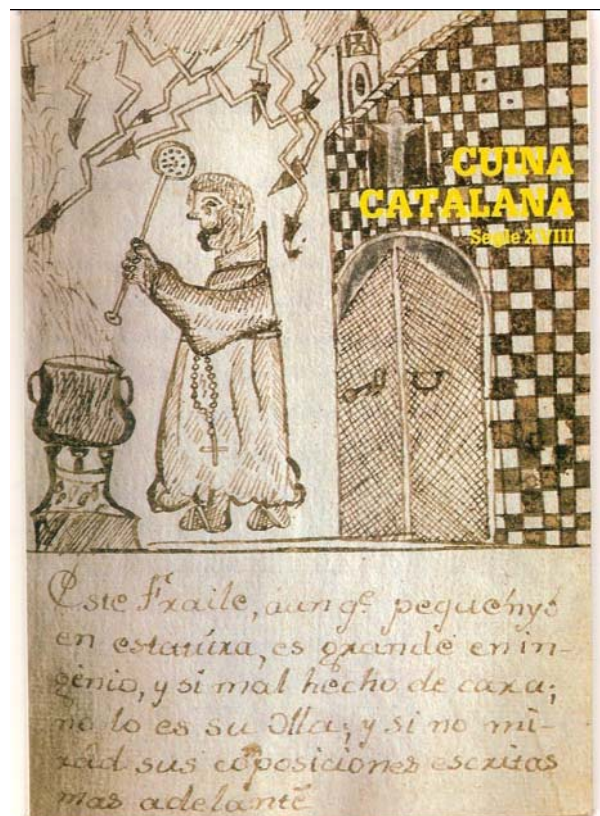 CUINA
CATALANA
Segle XVIII
Este Fraile, áun qe. pequenÿo
en estatúra, es grande en in-
génio, y si mal hecho de cara;
no lo es su Olla; y si no mi-
rad sus cōposiciones escritas
mas adelante